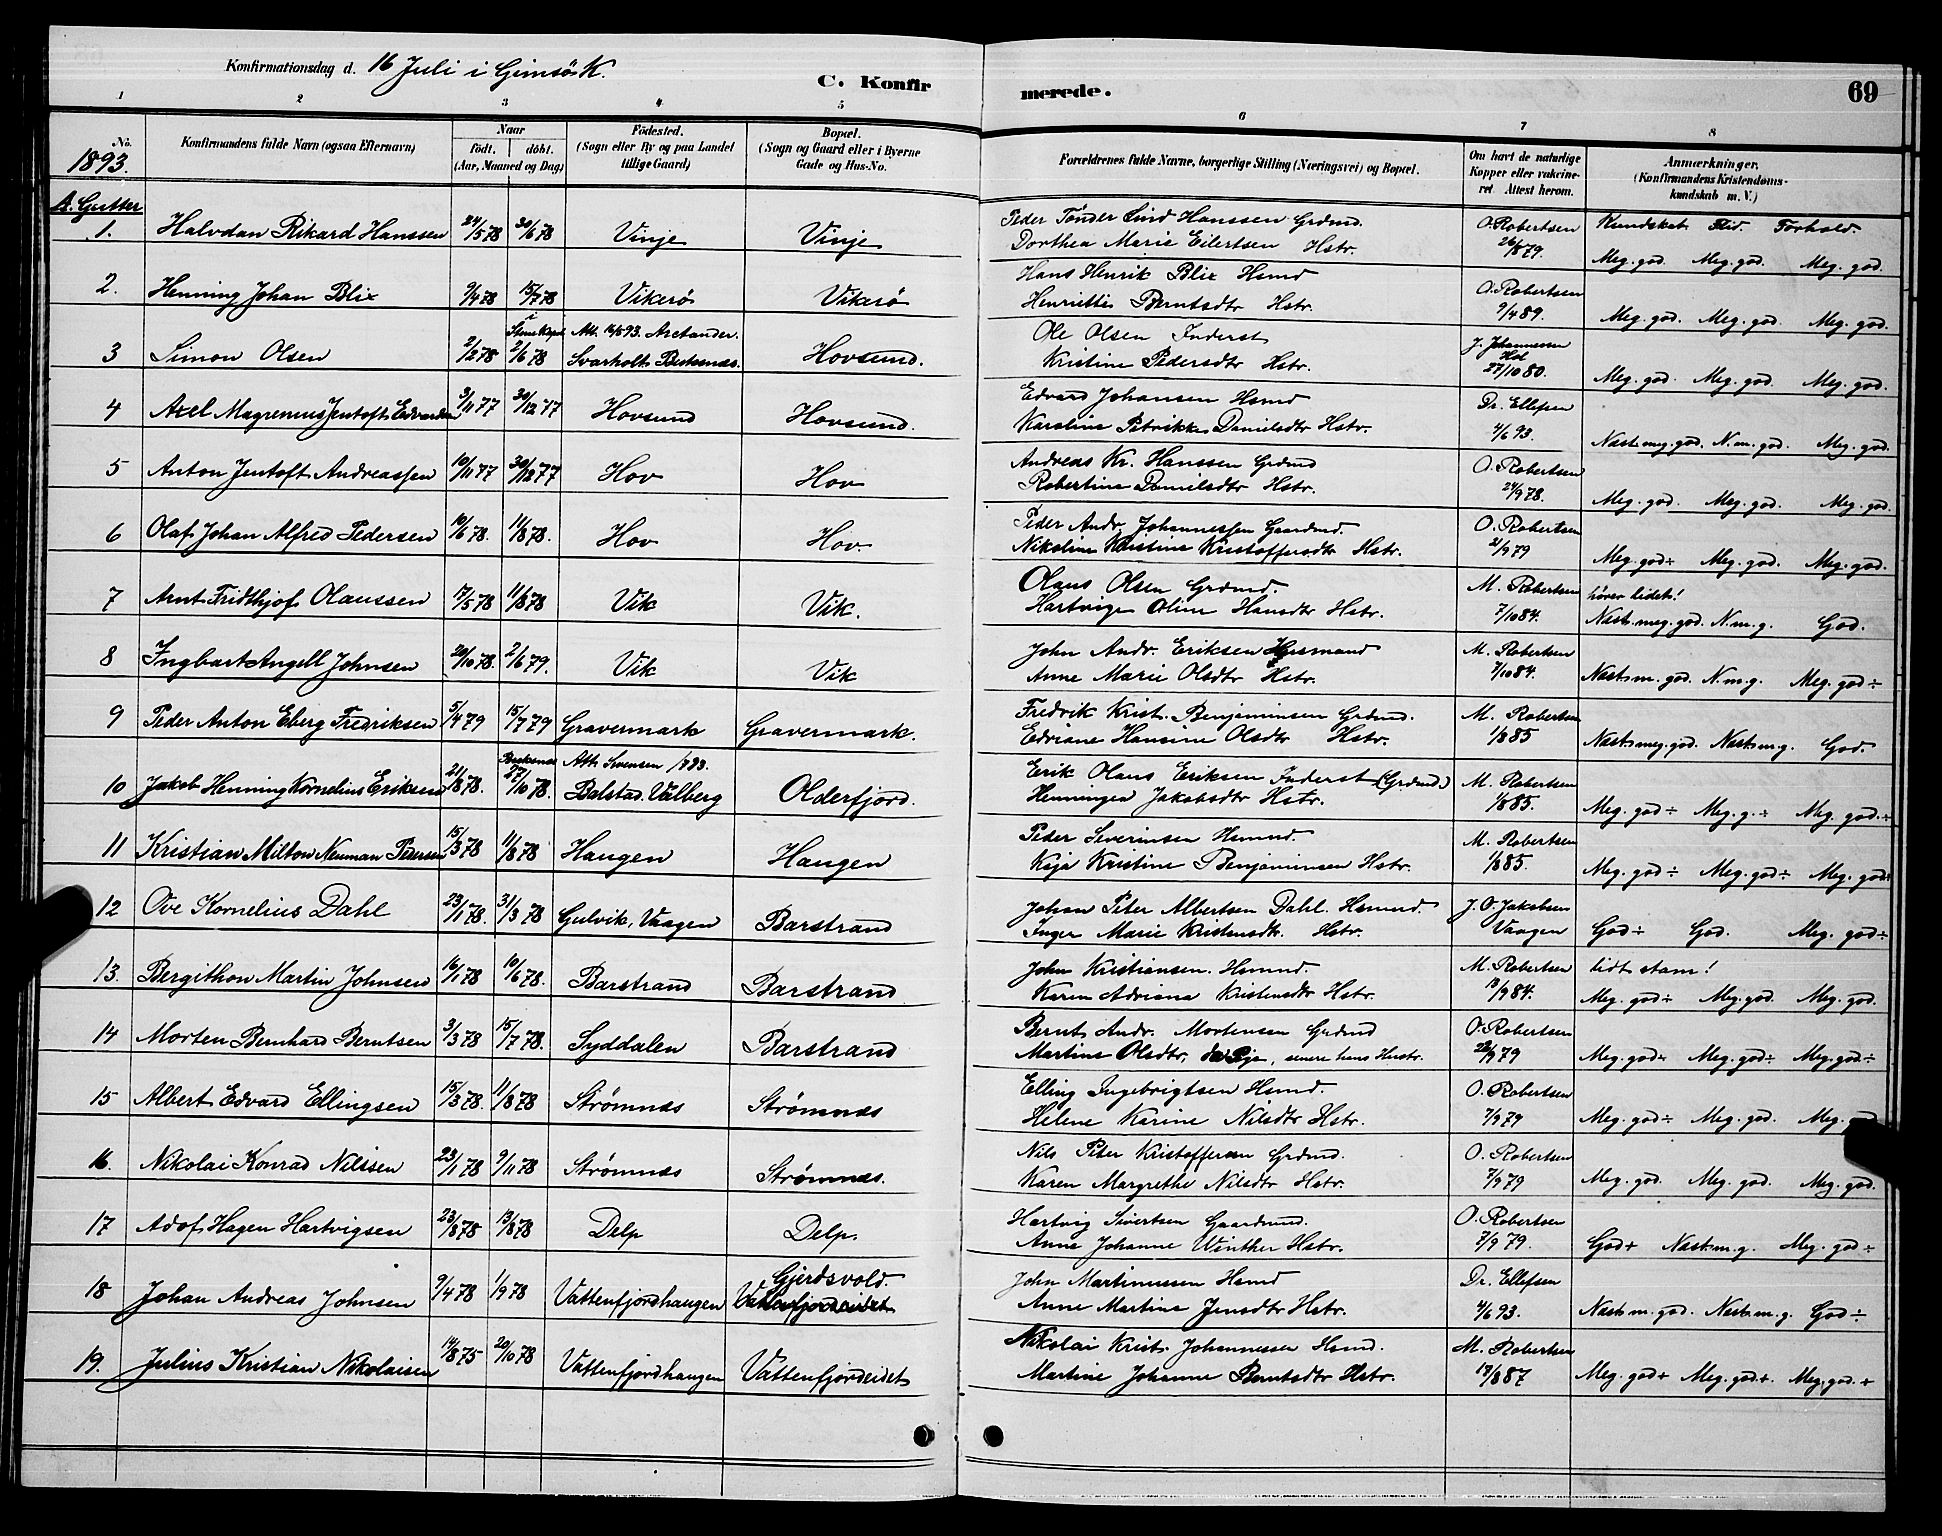 Konfirmationsdag d. 16 Juli i Gimsö K.
C. Konfirmerede.
69
1 2 3 4 5 6 7 8
No. 1893.
Konfirmandens fulde Navn (ogsaa Efternavn)
Naar født. döbt. (Aar, Maaned og Dag)
Födested. (Sogn eller By og paa Landet tillige Gaard)
Bopæl. (Sogn og Gaard eller i Byerne Gade og Hus-No.
Forældrenes fulde Navne, borgerlige Stilling (Næringsvei) og Bopæl.
Om havt de naturlige Kopper eller vakcineret. Attest herom.
Anmærkninger, (Konfirmandens Kristendomskundskab m. V.)
A. Gutter
Kundskab. Flid. Forhold.
1. Halvdan Rikard Hanssen 24/5 78 30/6 78 Vinje Vinje Peder Tønder Lind Hanssen Grdmd. O. Robertsen
Dorthea Marie Eilertsen Hstr. 26/8 79. Meg. god. Meg. god. Meg. god.
2. Henning Johan Blix 9/4 78 15/7 78 Vikerø Vikerø Hans Henrik Blix Hsmd O. Robertsen
Henriette Berntsdtr Hstr. 9/4 89. Meg. god. Meg. god. Meg. god.
3 Simon Olsen 2/2 78 2/6 78 Svarholt Buksnæs. Hovsund. Ole Olsen Inderst J. Johannessen Hol
Kristine Pedersdtr Hstr. 27/10 80. Meg. god. Meg. god. Meg. god.
4 Axel Magrenius Jentoft Edvardsen 3/11 77 30/12 77 Hovsund Hovsund. Edvard Johansen Hsmd Dr. Ellefsen
Karoline Petrikke Danielsdtr Hstr. 4/6 93. Næst. meg. god. N. m. god. Meg. god.
5 Anton Jentoft Andreassen 10/11 77 30/12 77 Hov Hov Andreas Kr. Hanssen Grdmd O. Robertsen
Robertine Danielsdtr Hstr. 24/9 78. Meg. god. Meg. god. Meg. god.
6 Olaf Johan Alfred Pedersen 10/6 78. 11/8 78. Hov Hov. Peder Andr. Johannessen Gaardmd. O. Robertsen
Nikoline Kristine Kristoffersdtr Hstr. 2/9 79 Meg. god÷ Meg. god. Meg. god.
7 Arnt Fridthjof Olaussen 17/5 78 11/8 78 Vik Vik. Olaus Olsen Grdmd. M. Robertsen hører lidet!
Hartvige Oline Hansdtr Hstr. 7/10 84. Næst. meg. god. N. m. g. God.
8 Ingbart Angell Johnsen 20/10 78. 2/6 79. Vik Vik John Andr. Eriksen Husmand M. Robertsen
Anne Marie Olsdtr Hstr. 7/10 84. Næst m. god. N. m. g. Meg. god÷
9 Peder Anton Eberg Fredriksen 5/4 79 15/7 79 Gravermark Gravermark. Fredrik Krist. Benjaminsen Grdmd. M. Robertsen
Edviane Hansine Olsdtr Hstr. 1/8 85 Næst meg. god. Næst m. g. God.
10 Jakob Henning Kornelius Eriksen 21/8 78. 27/10 78. Balstad. Valberg Olderfjord. Erik Olaus Eriksen Inderst (Grdmd.) M. Robertsen
Henningea Jakobsdtr Hstr. 1/8 85. Meg. god÷ Meg. g.÷ Meg. god.÷
11 Kristian Milton Neuman Pedersen 15/3 78 11/8 78 Haugen Haugen Peder Severinsen Hsmd. M. Robertsen
Kaja Kristine Benjaminsen Hstr. 1/8 85. Meg. god÷ Meg. god÷ Meg. god÷
12 Ove Kornelius Dahl 23/1 78. 31/3 78 Gulvik, Vaagen Barstrand Johan Peter Albertsen Dahl. Hsmd. J. O. Jakobsen
Inger Marie Kristensdtr. Hstr. Vaagen God÷ God. Meg. god÷
13. Bergithon Martin Johnsen 16/1 78 10/6 78. Barstrand Barstrand John Kristiansen. Hsmd. M. Robertsen lidt stam!
Karen Adriana Kristensdtr Hstr. 13/9 84. Meg. god÷ Meg. god. Meg. god.
14 Morten Bernhard Berntsen 3/3 78 15/7 78. Syddalen Barstrand Bernt Andr. Mortensen Grdmd O. Robertsen
Martine Olsdtr, da Pige, senere hans Hustr. 9 79 Meg. god÷ Meg. god÷ Meg. god÷
15 Albert Edvard Ellingsen 15/3 78. 11/8 78 Strømnæs Strømnæs Elling Ingebrigtsen Hsmd. O. Robertsen
Helene Karine Nilsdtr Hstr. 7/9 79 Meg. god÷ Meg. god. Meg.
16. Nikolai Konrad Nilssen 23/1 78 9/11 78 Strømnæs Strømnæs. Nils Peter Kristoffersen Grdmd. O. Robertsen
Karen Margrethe Nilsdtr Hstr. 7/9 79 Meg. god. Meg. god. Meg. god.
17 Adof Hagen Hartvigsen 23/8 78 13/8 78 Delp Delp. Hartvig Sivertsen Gaardmd. O. Robertsen
Anne Johanne Winther Hstr. 7/9 79. God+ Næst m. g. Meg. god÷
18 Johan Andreas Johnsen 9/4 78 1/9 78 Vattenfjordhaugen Gjerdsvold. Vattenfjordeidet John Martinussen Hsmd Dr. Ellefsen
Anne Martine Jensdtr Hstr. 4/6 93. Næst m. god. Næst m. g. God÷
19. Julius Kristian Nikolaisen 14/8 75 20/10 78 Vattenfjordhaugen Vattenfjordeidet Nikolai Krist. Johannessen Hsmd. M. Robertsen
Martine Johanne Berntsdtr Hstr. 13/8 87 Meg. god+ Meg. god+. Meg. god.+